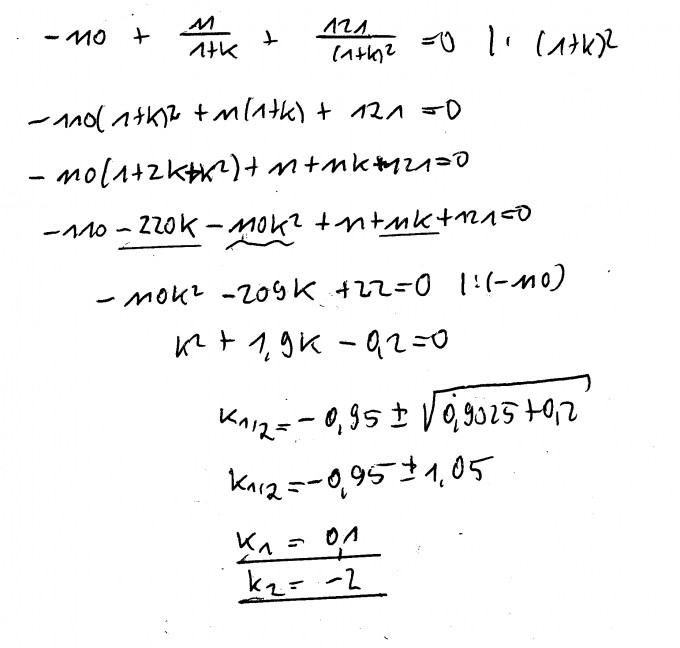 -110 + 11/(1+k) + 121/(1+k)² = 0 | · (1+k)²
-110(1+k)² + 11(1+k) + 121 = 0
-110(1+2k+k²) + 11 + 11k + 121 = 0
-110 - 220k - 110k² + 11 + 11k + 121 = 0
-110k² - 209k + 22 = 0 | : (-110)
k² + 1,9k - 0,2 = 0
k1/2 = -0,95 ± √(0,9025 + 0,2)
k1/2 = -0,95 ± 1,05
k1 = 0,1
k2 = -2